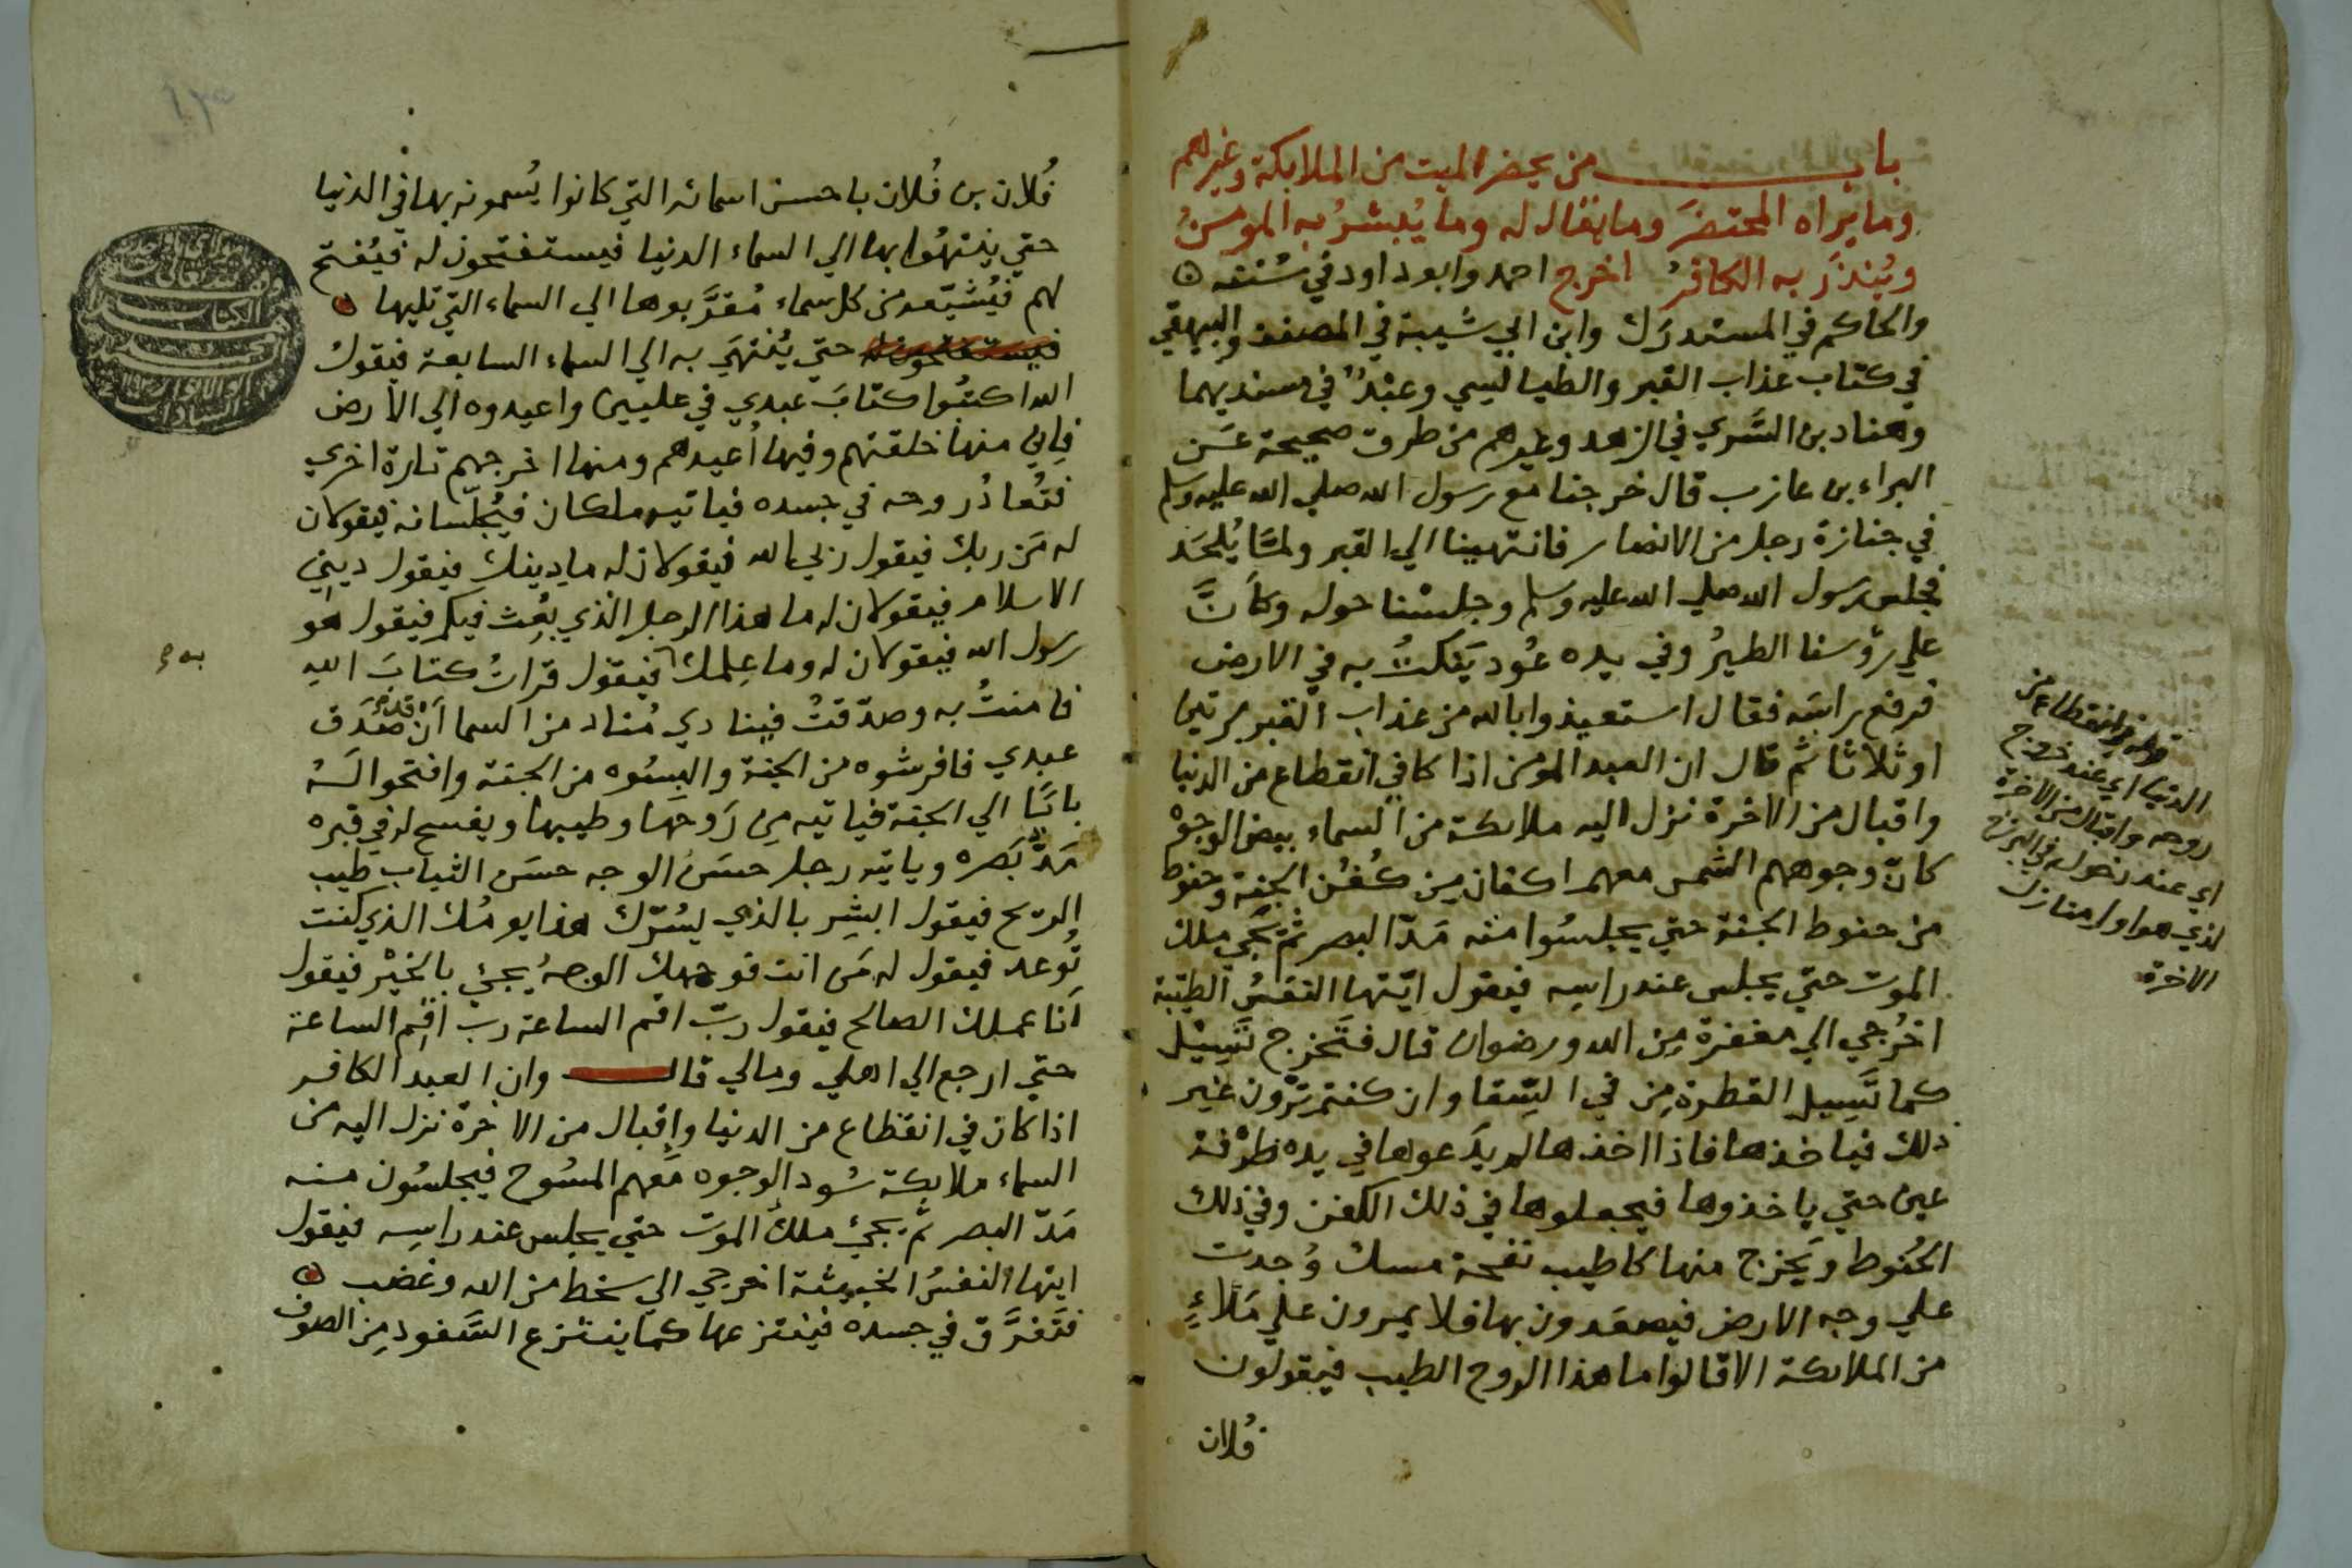 باب من يحضر الميت من الملايكة وغيرهم
وما يراه المحتضَر وما يقال له وما يُبشرُ به المومنُ
ويُنذَر به الكافرُ اخرج احمد وابوداود في سُننه
والحاكم في المستدرَك وابن ابي شيبة في المصنف والبيهقي
في كتاب عذاب القبر والطيالسي وعبْدٌ في مسنديهما
وهناد بن السَّري في الزهد وغيرهم من طرق صحيحة عن
البراء بن عازب قال خرجنا مع رسول الله صلي الله عليه وسلم
في جنازة رجل من الانصار فانتهينا الي القبر ولمَّا يُلحَد
فجلس رسول الله صلي الله عليه وسلم وجلسْنا حوله وكاَنَّ
علي رؤسنا الطيرُ وفي يده عُود يَنكتُ به في الارض
فرفع راسَه فقال استعيذوا بالله من عذاب القبر مرتين
او ثلاثا ثم قال ان العبد المؤمن اذا كا في انقطاع من الدنيا
واقبال من الاخرة نزل اليه ملايكة من السماء بيض الوجوه
كانّ وجوههم الشمس معهم اكفان مِن كُفُن الجنة وحنوط
من حنوط الجنة حتي يجلسُوا منه مَدّ البصر ثم يَجي ملك
الموت حتي يجلس عند راسِه فيقول ايّتها النفسُ الطيّبة
اخرُجي الي مغفرة مِن الله ورضوان قال فتَخرج تَسِيْل
كما تَسِيل القطرة مِن في السِّقا وان كنتم تَرَون غير
ذلك فياخذها فاذا اخذها لم يدَعوها في يده طرْفة
عين حتي ياخذوها فيجعلوها في ذلك الكفن وفي ذلك
الحُنوط ويَخرج منها كاطيب نفحة مسك وُجدت
علي وجه الارض فيصعَدون بها فلا يمرون علي مَلاءٍ
من الملايكة الا قالوا ما هذا الروح الطيب فيقولون
فُلان
قوله في انقطاع من
الدنيا اي عند خروج
روحه واقبال من الاخرة
اي عند دخوله في البرزخ
لذي هو اول منازل
الاخرة
فُلان بن فُلان باحسن اسمائه التي كانوا يُسمونه بها في الدنيا
حتي ينتهُوا بها الي السماء الدنيا فيستفتحون له فيُفتح
لهم فيُشيّعه من كل سماء مُقرَّبوها الي السماء التي تليها
فيستفتحون له حتي يُنتهَي به الي السماء السابعة فيقول
الله اكتبُوا كتابَ عبدي في عليين واعيدوه الي الارض
فاِني منها خلقتهم وفيها اُعيدهم ومنها اخرجهم تارة اخري
فتُعادُ روحه في جسده فياتيه ملكان فيُجلّسانه فيقولان
له مَن ربك فيقول ربي الله فيقولان له ما دينك فيقول ديني
الاسلام فيقولان له ما هذا الرجل الذي بُعِث فيكم فيقول هو
رسول الله فيقولان له وما عِلمك فيقول قراتُ كتابَ الله
فامنتُ به وصدّقتُ فينادي مُناد من السما اَن قد صَدَق
عبدي فافرشوه من الجنة والبِسُوه من الجنة وافتحوا لَهُ
بابًا الي الجنة فياتيه مِن رَوحها وطيبها ويفسح له في قبره
مَدّ بَصَره وياتيه رجل حسَن الوجه حسَن الثياب طيب
الريح فيقول ابشِر بالذي يسُرّك هذا يومُك الذي كنت
تُوعد فيقول له مَن انت فوجهك الوجهُ يجئ بالخيْر فيقول
اَنا عملك الصالح فيقول ربّ اقم الساعة رب اقِم الساعة
حتي ارجع الي اهلي ومالي قال وان العبد الكافر
اذا كان في انقطاع من الدنيا وإقبال من الاخرة نزل اليه من
السماء ملايكة سُود الوجوه مَعهم المسُوح فيجلسُون منه
مَدّ البصر ثم يجئ ملك الموت حتي يجلس عند راسِه فيقول
ايتها النفسُ الخبيثة اخرجي الي سخط من الله وغضب
فتَفرَّق في جسده فينتزعها كما ينتزع السَّفود مِن الصوف